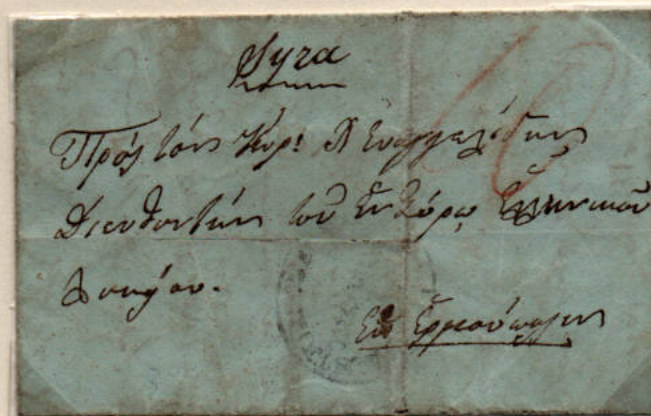 Syra
Πρός τόν Κύρ: Χ Ευαγγελίδην
Διευθυντήν του Εν Σύρω Ελληνικού
Λυκείου.
Εις Ερμούπολιν